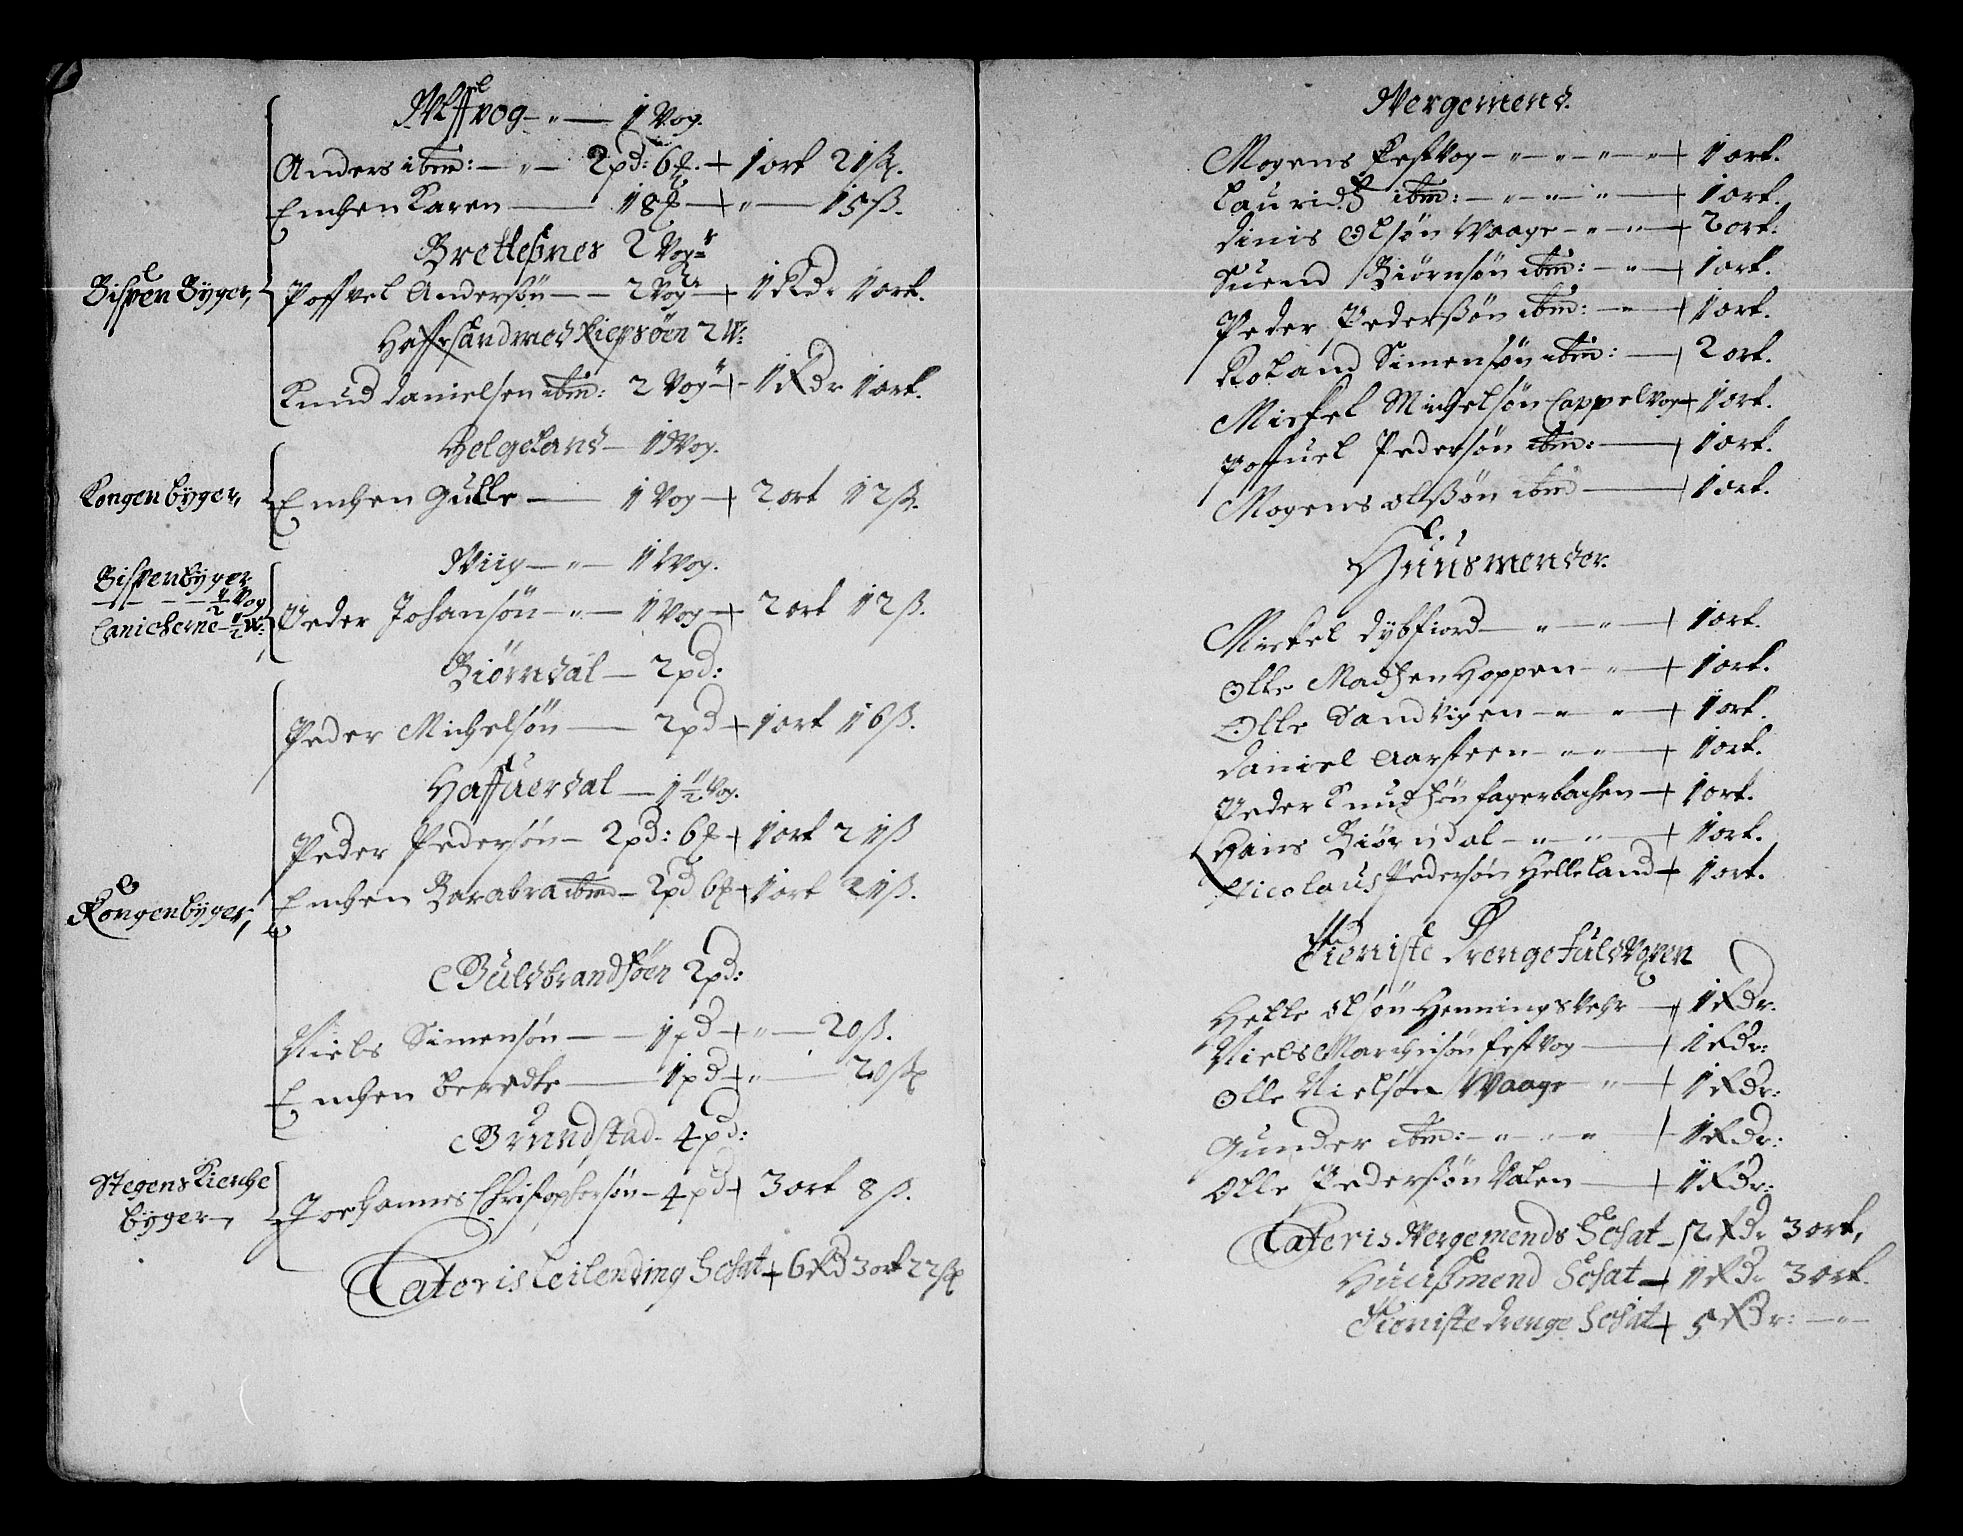 Ulffvog — " — 1 Vog.
Anders ibm: — " — 2 pd: 6 ℔. + 1 ort 21 ß.
Enchen Karen — 18 ℔ + " — 15 ß.
Brettesnes 2 Vogr
Bispen Byger,
Poffvel Andersøn — 2 Vogr + 1 Rdr 1 ort.
med Riepsøen 2 W:
Knud Danielsen ibm: 2 Vogr + 1 Rdr 1 ort.
Helgeland — 1 Wog.
Kongen byger,
Enchen Gulle — 1 Vog + 2 ort 12 ß.
Viig — " — 1 Wog.
Bispen byger
— ½ Vog
Canicherne ½ W:
Peder Johansøn — " — 1 Vog + 2 ort 12 ß.
Biørndal — 2 pd:
Peder Michelsøn — 2 pd + 1 ort 16 ß.
Haffuerdal — 1½ Vog.
Peder Pedersøn — 2 pd: 6 ℔ + 1 ort 21 ß
Enchen Barabra ibmd — 2 pd 6 ℔ + 1 ort 21 ß.
Kongen byger,
Guldbrandsøen 2 pd:
Niels Simensøn — 1 pd + " — 20 ß.
Enchen Beredte — 1 pd + " — 20 ß
Brundstad — 4 pd:
Stegens Kierche
byger,
Joehannes Christophersøn — 4 pd + 3 ort 8 ß.
Lateris Leilending Schat + 6 Rd 3 ort 22 ß
Nergemend.
Mogens Festvog — " — " — " + 1 ort.
Lauridz ibm: — " — " — " + 1 ort.
Dinis Olsøn Waage — " — " + 2 ort.
Suend Biørnsøn ibm: — " + 1 ort.
Peder Pedersøn ibm: — " + 1 ort.
Roland Simensøn ibm: — + 2 ort.
Michel Michelsøn Cappelvog + 1 ort.
Poffuel Pedersøn ibm: — + 1 ort.
Mogens olssøn ibmd — + 1 ort.
Huusmender.
Michel Dybfiord — " — " + 1 ort.
Olle Madtzen Hoppen — " + 1 ort.
Olle Sandvigen — " — " + 1 ort.
Daniel Aarsteen — " — " + 1 ort.
Peder Knudtzøn fagerbachen + 1 ort.
Hans Biørndal — " — " + 1 ort.
Nicolaus Pedersøn Helleland + 1 ort.
Tieniste Drenge fuldvoxen
Helle Olsøn Henningsvehr + 1 Rdr.
Niels Marchusøn festvog + 1 Rdr:
Olle Nielsøn Waage — " + 1 Rdr:
Gunder ibm: — " — " — " + 1 Rdr:
Olle Pedersøn Valen + 1 Rdr:
Lateris Nergemends Schat — 2 Rdr 3 ort,
Huusmend Schat + 1 Rdr 3 ort.
Tieniste drenge Schat + 5 Rdr: — " —